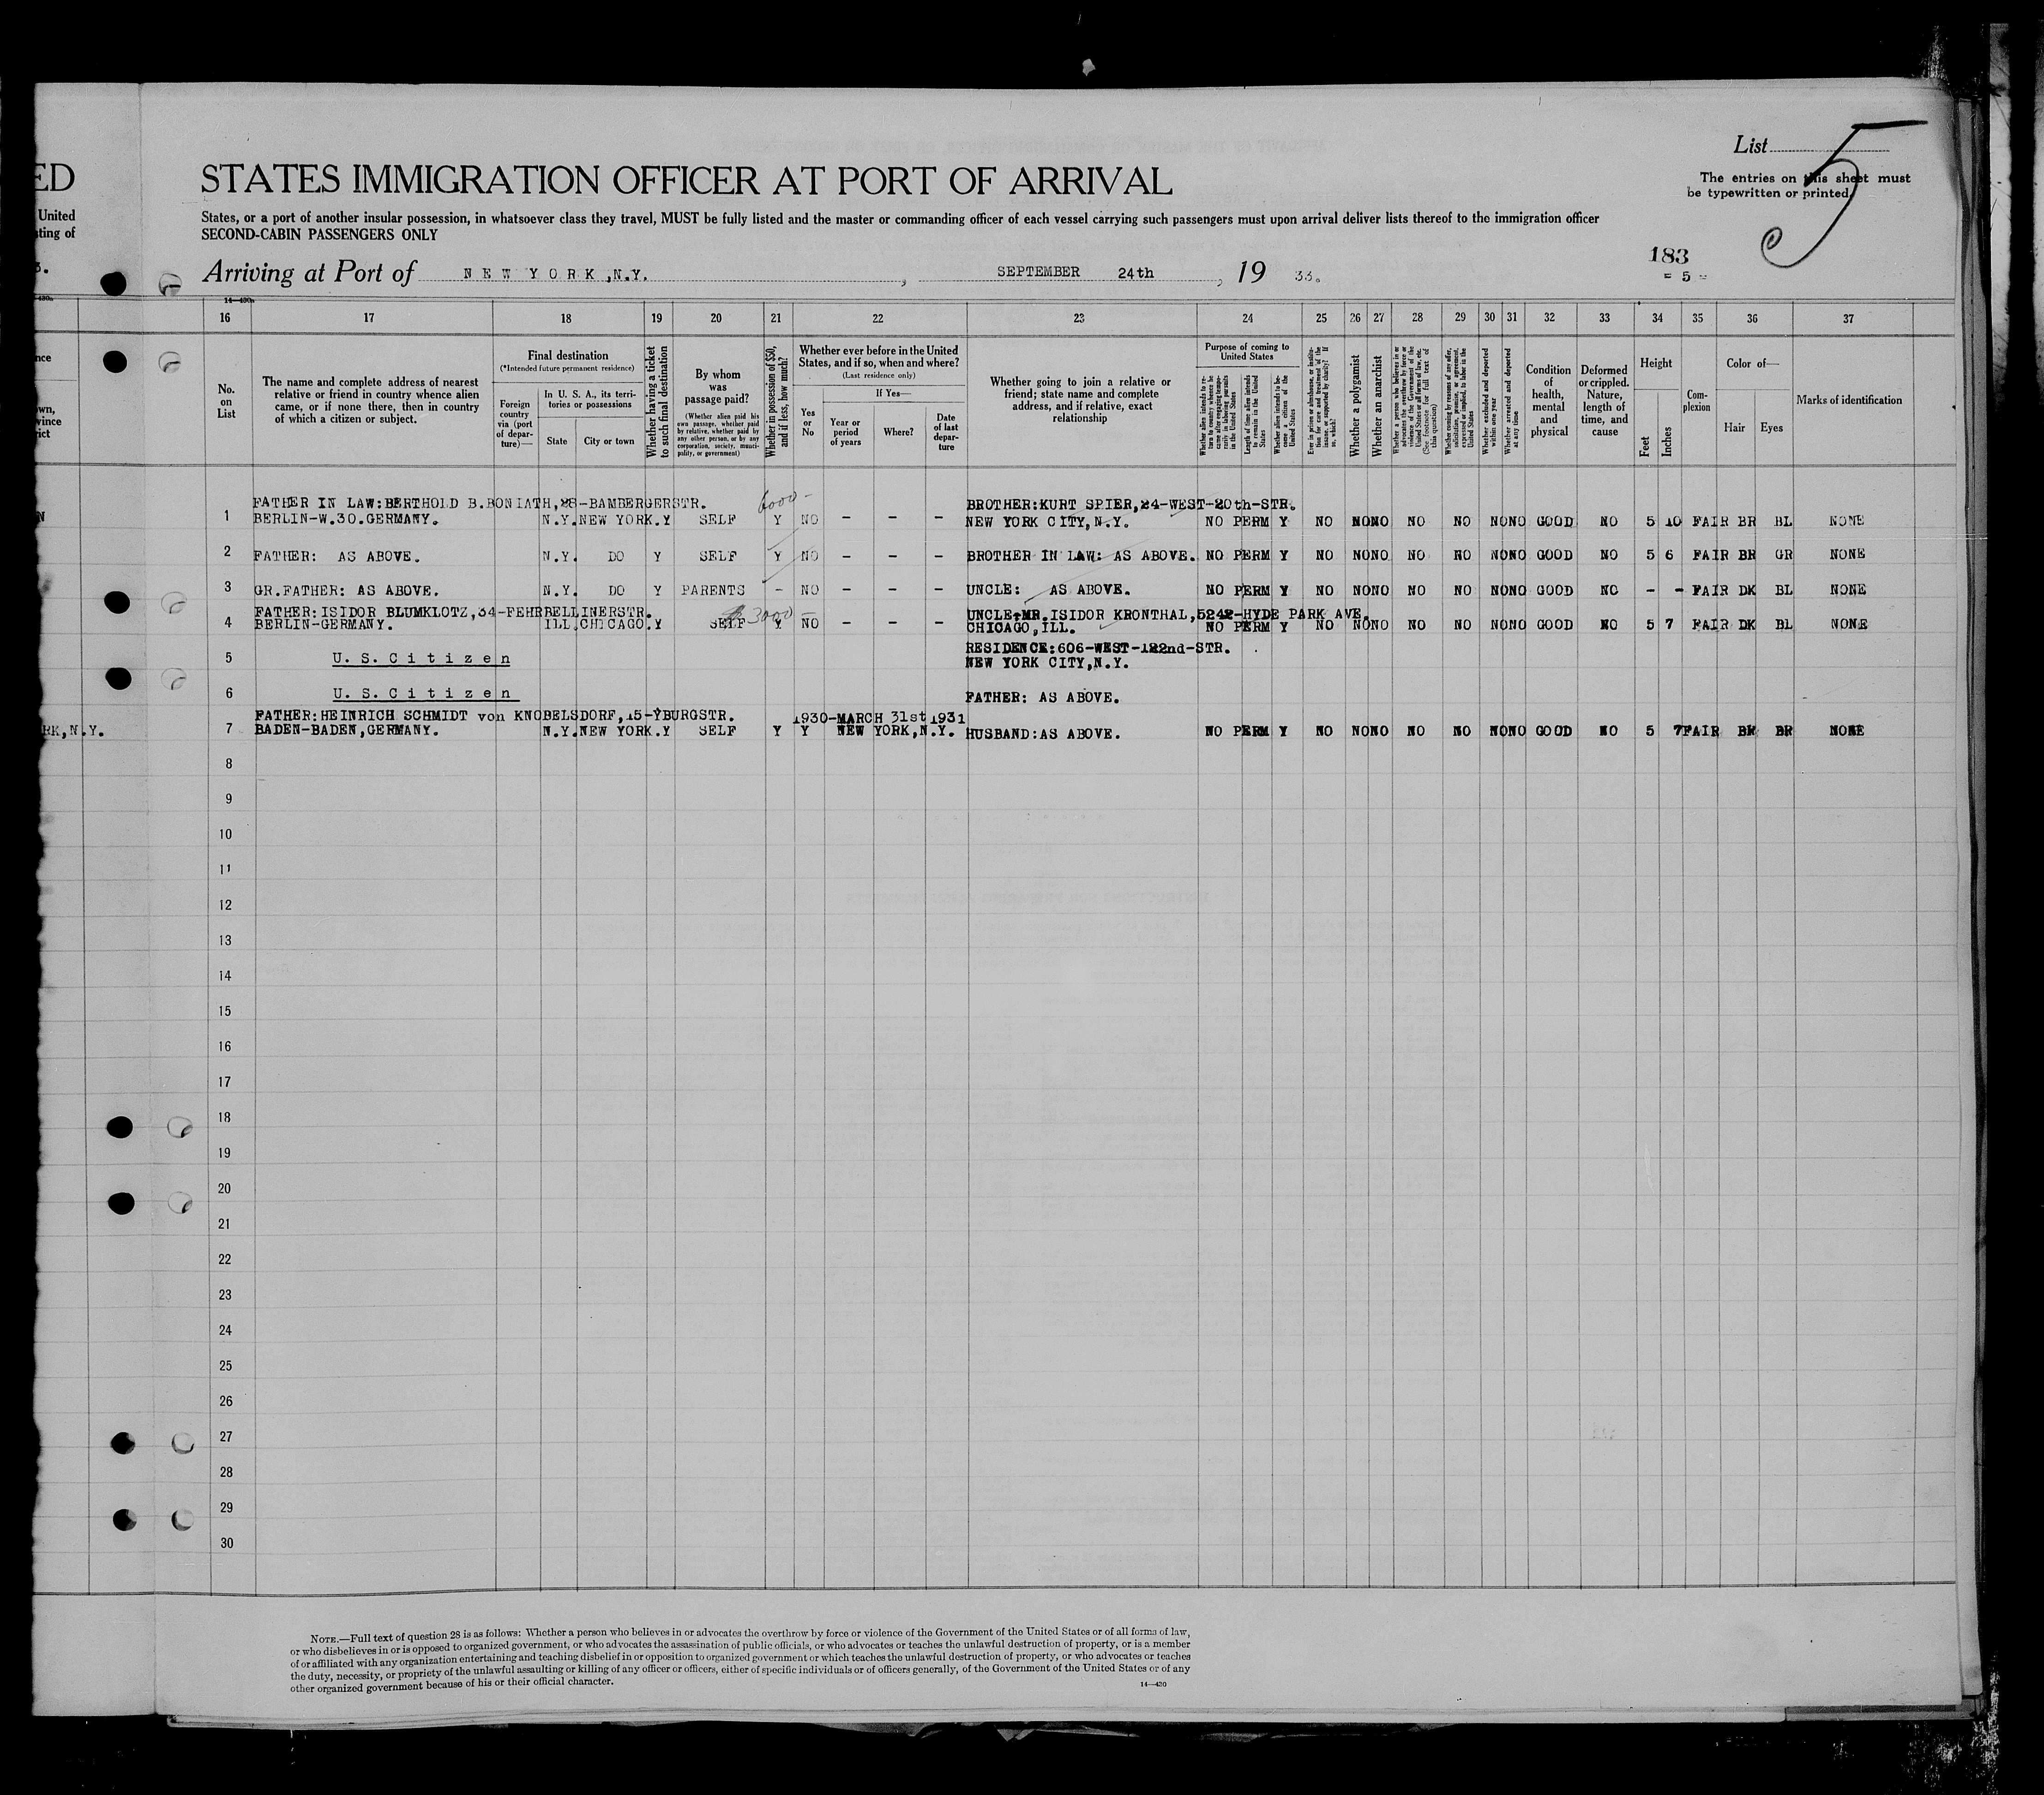 List 5
ED
STATES IMMIGRATION OFFICER AT PORT OF ARRIVAL
The entries on this sheet must
be typewritten or printed.
United
States, or a port of another insular possession, in whatsoever class they travel, MUST be fully listed and the master or commanding officer of each vessel carrying such passengers must upon arrival deliver lists thereof to the immigration officer
ting of
SECOND-CABIN PASSENGERS ONLY
183
Arriving at Port of NEW YORK, N.Y. , SEPTEMBER 24th , 19 33.
= 5 =
14—430
16 17 18 19 20 21 22 23 24 25 26 27 28 29 30 31 32 33 34 35 36 37
No. on List
The name and complete address of nearest relative or friend in country whence alien came, or if none there, then in country of which a citizen or subject.
Final destination
(*Intended future permanent residence)
Foreign country via (port of departure)—
In U. S. A., its territories or possessions
State
City or town
Whether having a ticket to such final destination
By whom was passage paid?
(Whether alien paid his own passage, whether paid by relative, whether paid by any other person, or by any corporation, society, municipality, or government)
Whether in possession of $50, and if less, how much?
Whether ever before in the United States, and if so, when and where?
(Last residence only)
Yes or No
If Yes—
Year or period of years
Where?
Date of last departure
Whether going to join a relative or friend; state name and complete address, and if relative, exact relationship
Purpose of coming to United States
Whether alien intends to return to country whence he came after engaging temporarily in laboring pursuits in the United States
Length of time alien intends to remain in the United States
Whether alien intends to become a citizen of the United States
Ever in prison or almshouse, or institution for care and treatment of the insane, or supported by charity? If so, which?
Whether a polygamist
Whether an anarchist
Whether a person who believes in or advocates the overthrow by force or violence of the Government of the United States or all forms of law, etc. (See footnote for full text of this question)
Whether coming by reasons of any offer, solicitation, promise, or agreement, expressed or implied, to labor in the United States
Whether excluded and deported within one year
Whether arrested and deported at any time
Condition of health, mental and physical
Deformed or crippled. Nature, length of time, and cause
Height
Feet
Inches
Complexion
Color of—
Hair
Eyes
Marks of identification
FATHER IN LAW:BERTHOLD B.BONIATH,28-BAMBERGERSTR. 6000- BROTHER:KURT SPIER,24-WEST-20th-STR.
1 BERLIN-W.30.GERMANY. N.Y. NEW YORK. Y SELF Y NO - - - NEW YORK CITY,N.Y. NO PERM Y NO NO NO NO NO NO NO GOOD NO 5 10 FAIR BR BL NONE
2 FATHER: AS ABOVE. N.Y. DO Y SELF Y NO - - - BROTHER IN LAW: AS ABOVE. NO PERM Y NO NO NO NO NO NO NO GOOD NO 5 6 FAIR BR GR NONE
3 GR.FATHER: AS ABOVE. N.Y. DO Y PARENTS - NO - - - UNCLE: AS ABOVE. NO PERM Y NO NO NO NO NO NO NO GOOD NO - - FAIR DK BL NONE
FATHER:ISIDOR BLUMKLOTZ,34-FEHRBELLINERSTR. 3000- UNCLE:MR.ISIDOR KRONTHAL,5242-HYDE PARK AVE.
4 BERLIN-GERMANY. ILL. CHICAGO. Y SELF Y NO - - - CHICAGO,ILL. NO PERM Y NO NO NO NO NO NO NO GOOD NO 5 7 FAIR DK BL NONE
RESIDENCE:606-WEST-122nd-STR.
5 U. S. C i t i z e n NEW YORK CITY,N.Y.
6 U. S. C i t i z e n FATHER: AS ABOVE.
FATHER:HEINRICH SCHMIDT von KNOBELSDORF,15-YBURGSTR. 1930-MARCH 31st 1931
RK,N.Y. 7 BADEN-BADEN,GERMANY. N.Y. NEW YORK. Y SELF Y Y NEW YORK,N.Y. HUSBAND:AS ABOVE. NO PERM Y NO NO NO NO NO NO NO GOOD NO 5 7 FAIR BR BR NONE
8
9
10
11
12
13
14
15
16
17
18
19
20
21
22
23
24
25
26
27
28
29
30
NOTE.—Full text of question 28 is as follows: Whether a person who believes in or advocates the overthrow by force or violence of the Government of the United States or of all forms of law,
or who disbelieves in or is opposed to organized government, or who advocates the assassination of public officials, or who advocates or teaches the unlawful destruction of property, or is a member
of or affiliated with any organization entertaining and teaching disbelief in or opposition to organized government or which teaches the unlawful destruction of property, or who advocates or teaches
the duty, necessity, or propriety of the unlawful assaulting or killing of any officer or officers, either of specific individuals or of officers generally, of the Government of the United States or of any
other organized government because of his or their official character.
14—430